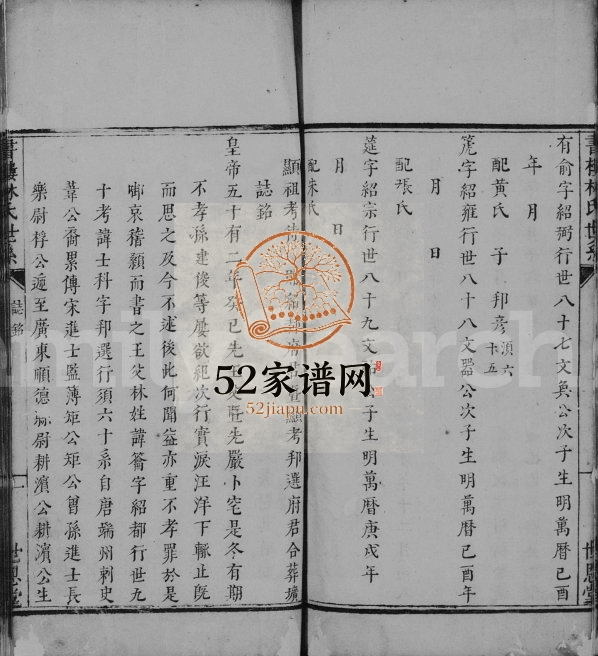 有俞字紹弼行世八十七文奐公次子生明萬曆己酉
年 月
配黃氏 子 邦彥 湏六 卞五
箎字紹雍行世八十八文器公次子生明萬曆己酉年
月 日
配張氏
筵字紹宗行世八十九文 公子生明萬曆庚戌年
月 日
配朱氏
顯祖考 府 顯考邦選府君合葬壙
誌銘
皇帝五十有二年癸巳先 先嚴卜宅是冬有期
不孝孫建後等屢欲 次行實淚汪洋下輒止旣
而思之及今不述後此何聞益亦重不孝罪於是
啣哀稽顙而書之王父林姓諱 字紹都行世九
十考諱士科字邦選行須六十系自唐端州刺史
葦公裔累傳宋進士 簿矩公矩公曾孫進士長
樂尉桴公遞至廣東順德 尉耕濱公耕濱公生
書樓林氏世系
誌銘
一
世恩堂
書樓林氏世系
世恩堂
52家谱网
52jiapu.com
FamilySearch